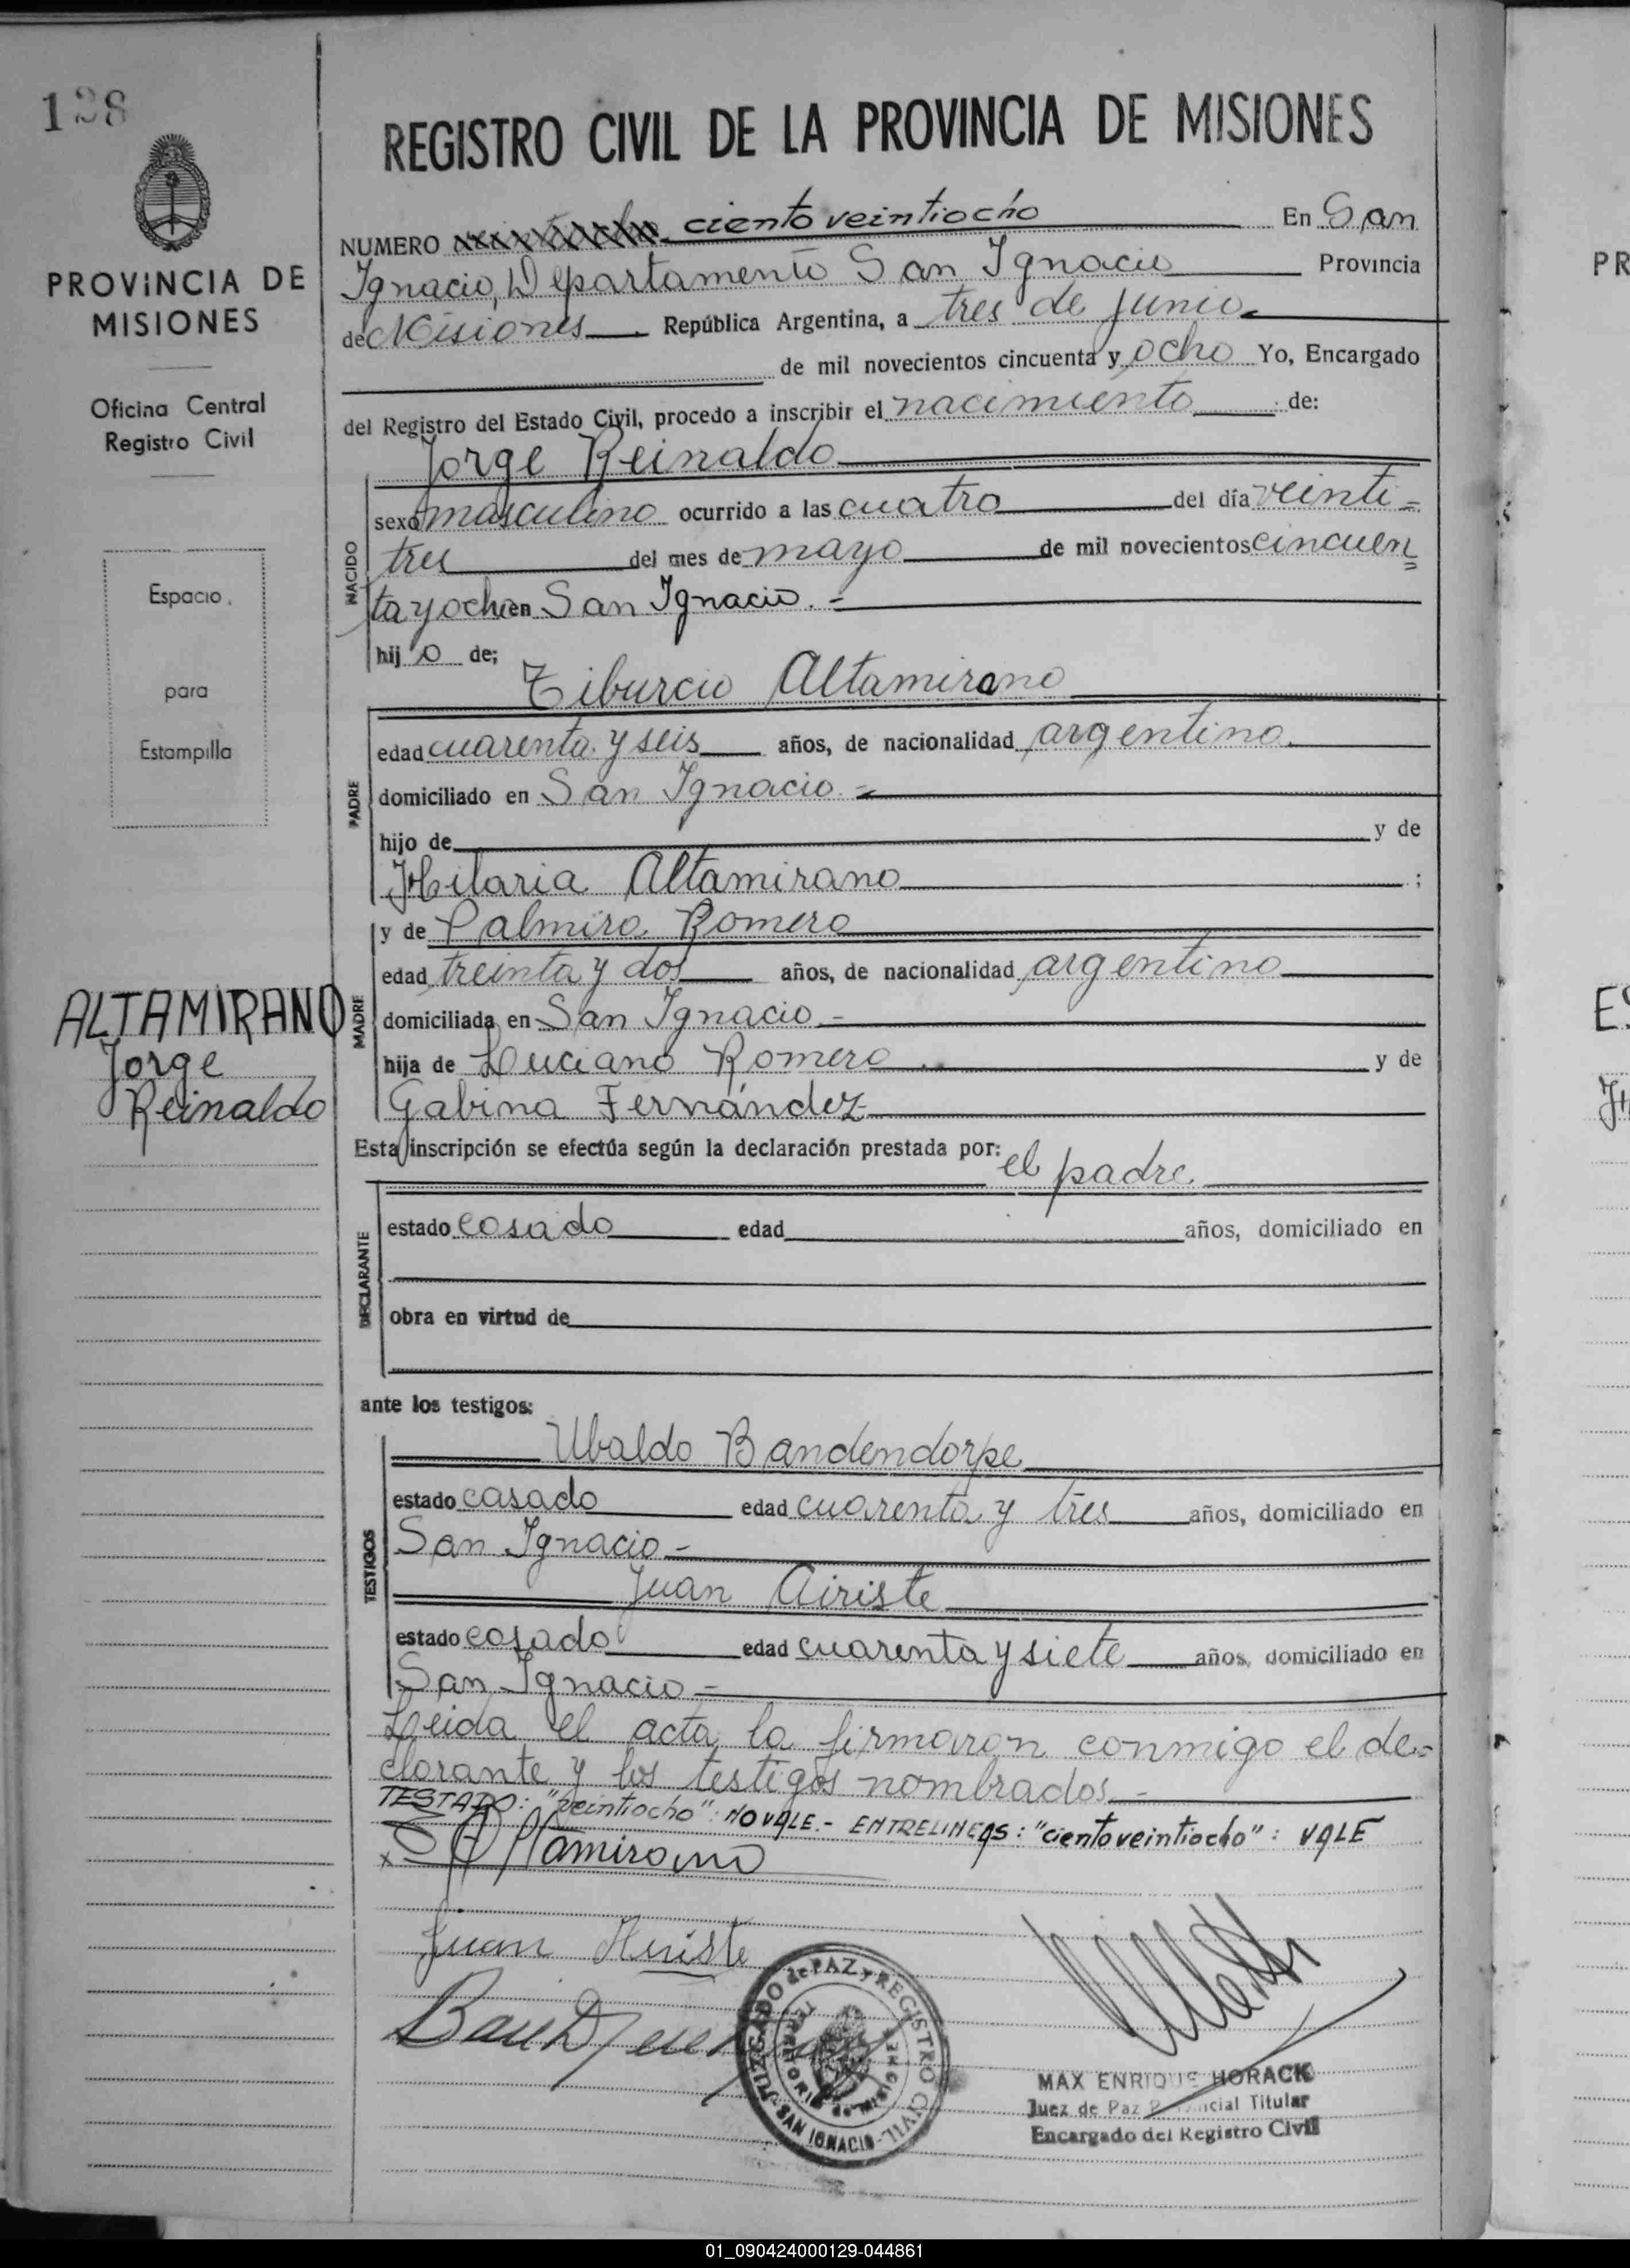 128
REGISTRO CIVIL DE LA PROVINCIA DE MISIONES
PROVINCIA DE
MISIONES
Oficina Central
Registro Civil
Espacio
para
Estampilla
ALTAMIRANO
Jorge
Reinaldo
NUMERO veintiocho ciento veintiocho En San
Ignacio, Departamento San Ignacio Provincia
de Misiones República Argentina, a tres de junio
de mil novecientos cincuenta y ocho Yo, Encargado
del Registro del Estado Civil, procedo a inscribir el nacimiento de:
Jorge Reinaldo
NACIDO
sexo masculino ocurrido a las cuatro del día veinti-
tres del mes de mayo de mil novecientos cincuen=
ta y ocho en San Ignacio.-
hijo de;
Tiburcio Altamirano
PADRE
edad cuarenta y seis años, de nacionalidad argentino
domiciliado en San Ignacio.-
hijo de y de
Hilaria Altamirano ;
y de Palmira Romero
MADRE
edad treinta y dos años, de nacionalidad argentino
domiciliada en San Ignacio.-
hija de Luciano Romero y de
Gabina Fernández
Esta inscripción se efectúa según la declaración prestada por:
el padre
DECLARANTE
estado casado edad años, domiciliado en
obra en virtud de
ante los testigos:
TESTIGOS
Ubaldo Bandendorpe
estado casado edad cuarenta y tres años, domiciliado en
San Ignacio-
Juan Airiste
estado casado edad cuarenta y siete años, domiciliado en
San Ignacio-
Leida el acta la firmaron conmigo el de-
clarante y los testigos nombrados.-
TESTADO: "veintiocho": NO VALE.- ENTRELINEAS: "ciento veintiocho": VALE
Altamirano
Juan Airiste
JUZGADO de PAZ y REGISTRO CIVIL
SAN IGNACIO
TERRITORIO de MISIONES
MAX ENRIQUE HORACK
Juez de Paz Provincial Titular
Encargado del Registro Civil
PR
ES
01_090424000129-044861